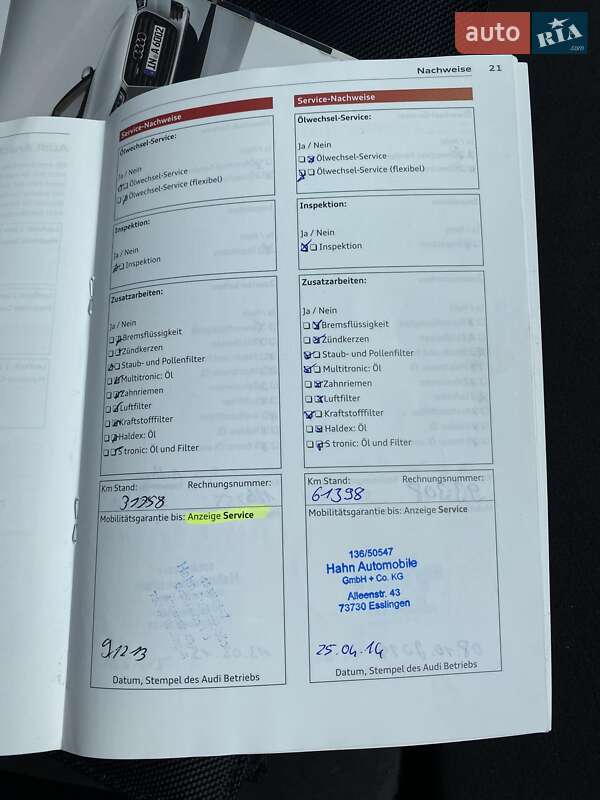 auto RIA.com
IN A 6002
Nachweise 21
Service-Nachweise
Ölwechsel-Service:
Ja / Nein
Ölwechsel-Service
Ölwechsel-Service (flexibel)
Inspektion:
Ja / Nein
Inspektion
Zusatzarbeiten:
Ja / Nein
Bremsflüssigkeit
Zündkerzen
Staub- und Pollenfilter
Multitronic: Öl
Zahnriemen
Luftfilter
Kraftstofffilter
Haldex: Öl
S tronic: Öl und Filter
Km Stand: Rechnungsnummer:
31358
Mobilitätsgarantie bis: Anzeige Service
9.12.13
Datum, Stempel des Audi Betriebs
Service-Nachweise
Ölwechsel-Service:
Ja / Nein
Ölwechsel-Service
Ölwechsel-Service (flexibel)
Inspektion:
Ja / Nein
Inspektion
Zusatzarbeiten:
Ja / Nein
Bremsflüssigkeit
Zündkerzen
Staub- und Pollenfilter
Multitronic: Öl
Zahnriemen
Luftfilter
Kraftstofffilter
Haldex: Öl
S tronic: Öl und Filter
Km Stand: Rechnungsnummer:
61398
Mobilitätsgarantie bis: Anzeige Service
136/50547
Hahn Automobile
GmbH + Co. KG
Alleenstr. 43
73730 Esslingen
25.04.14
Datum, Stempel des Audi Betriebs